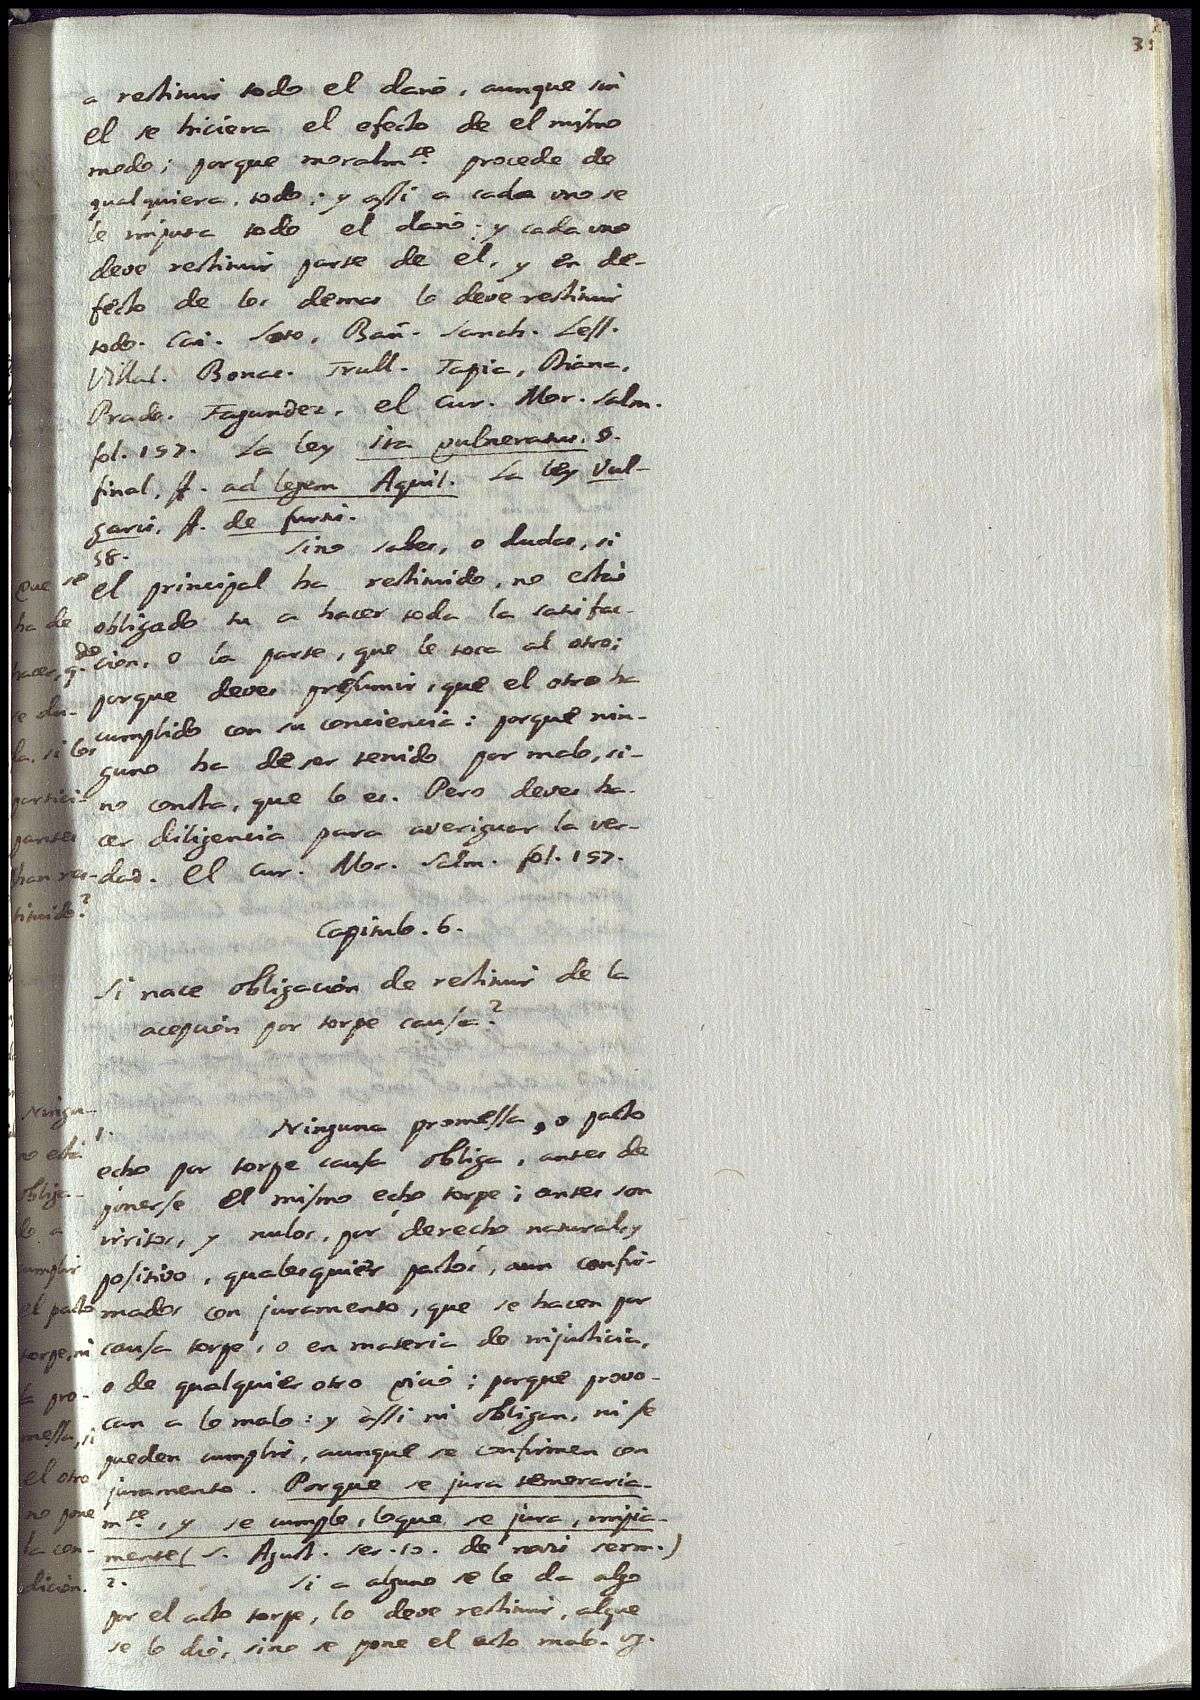 35
a restituir todo el daño, aunque sin
el se hiciera el efecto de el mismo
modo; porque moralmte. procede de
qualquiera, todo: y assi a cada uno se
le imputa todo el daño: y cada uno
deve restituir parte de el, y en de-
fecto de los demas lo deve restituir
todo. Cai. Soto, Bañ. Sanch. Less.
Villal. Bonac. Trull. Tapia, Diana,
Prado. Fagundez, el Cur. Mor. Salm.
fol. 157. La ley ita vulneratus, §.
final, ff. ad legem Aquil. La ley Vul-
garis, ff. de furtis.
58. Sino sabes, o dudas, si
el principal ha restituido, no estás
obligado tu a hacer toda la satisfac-
cion, o la parte, que le toca al otro;
porque deves presumir, que el otro ha
cumplido con su conciencia: porque nin-
guno ha de ser tenido por malo, si-
no consta, que lo es. Pero deves ha-
cer diligencia para averiguar la ver-
dad. El Cur. Mor. Salm. fol. 157.
Que se
ha de
hacer, qdo.
se du-
da, si los
partici-
pantes
han res-
tituido?
Capitulo. 6.
Si nace obligación de restituir de la
acepción por torpe causa?
1. Ninguna promessa, o pacto
echo por torpe causa obliga, antes de
ponerse el mismo echo torpe; antes son
irritos, y nulos, por derecho natural, y
positivo, qualesquier pactos, aun confir-
mados con juramento, que se hacen por
causa torpe, o en materia de injusticia,
o de qualquier otro vicio; porque provo-
can a lo malo: y assi ni obligan, ni se
pueden cumplir, aunque se confirmen con
juramento. Porque se jura temeraria-
mte., y se cumple, loque se jura, impia-
mente (S. Agust. ser. 10. de serm.)
Ningu-
no está
obliga-
do a
cumplir
el pacto
torpe, ni
la pro-
messa, si
el otro
no pone
la con-
dición.
2. Si a alguno se le da algo
por el acto torpe, lo deve restituir, alque
se lo dió, sino se pone el acto malo. vg.